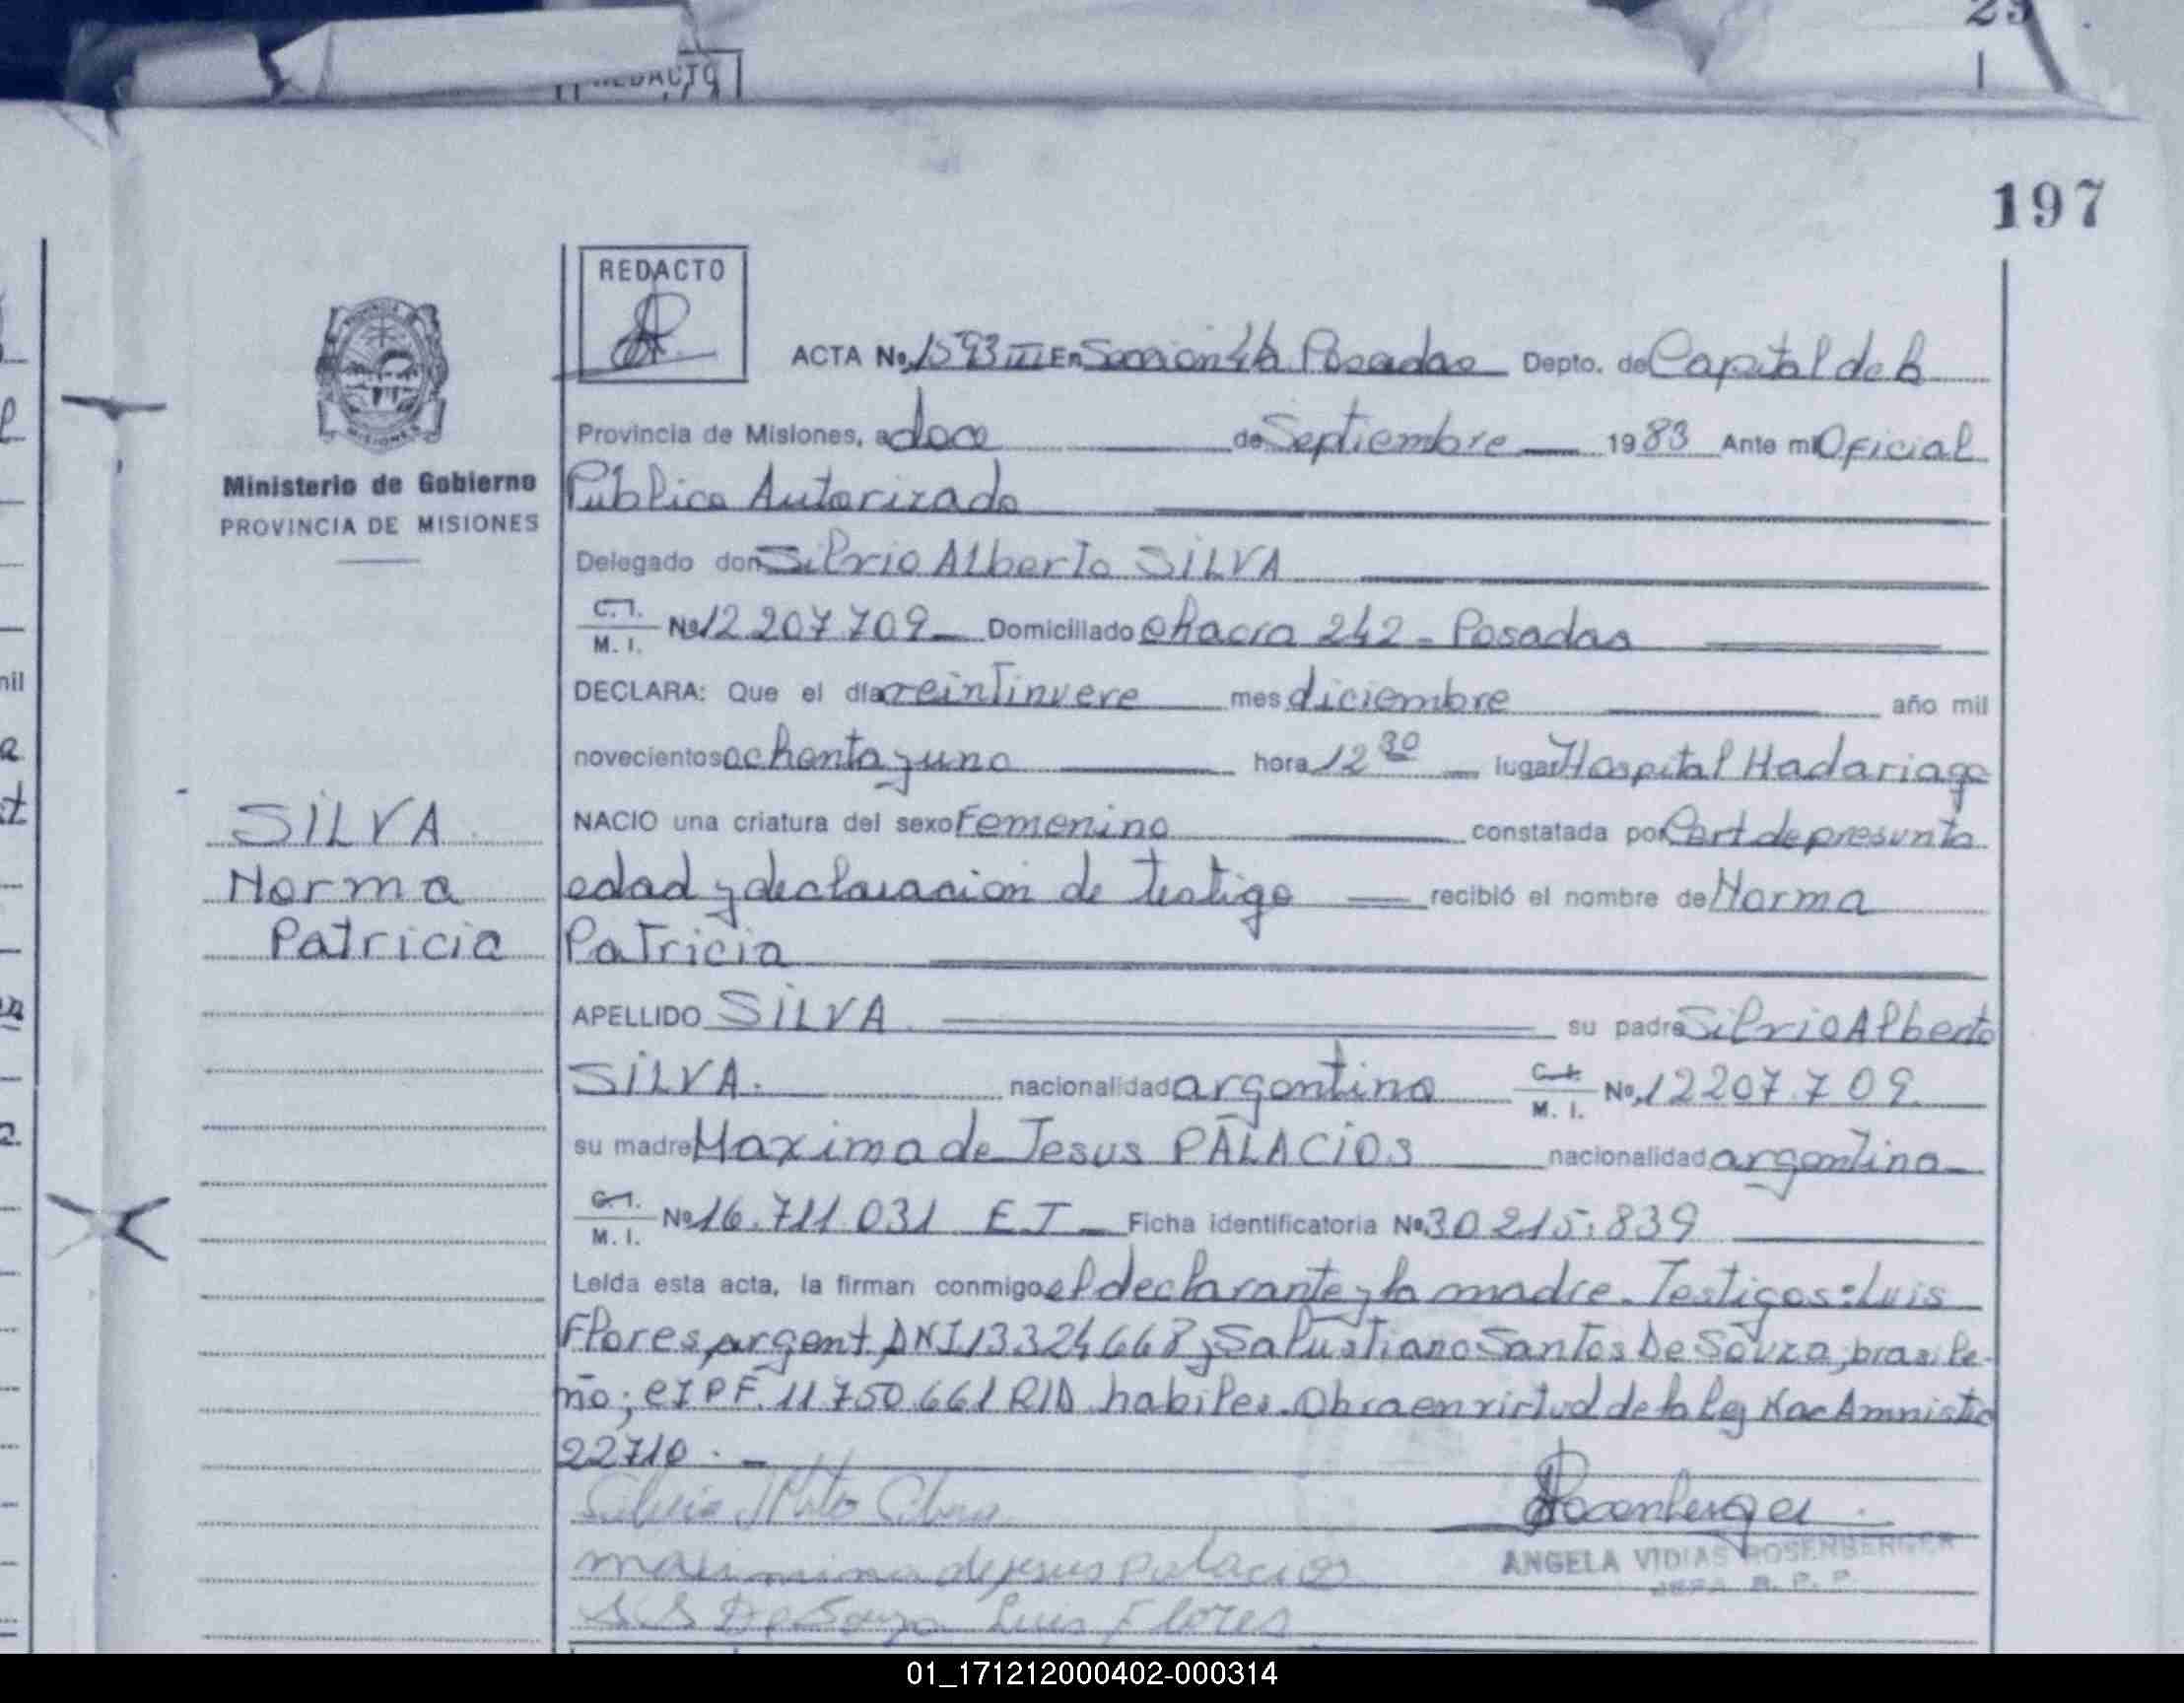 REDACTO
197
REDACTO
ACTA No. 1593 III En Sección 4ta Posadas Depto. de Capital de la
Provincia de Misiones, a doce de Septiembre 1983 Ante mi Oficial
Ministerio de Gobierno
PROVINCIA DE MISIONES
Público Autorizado
Delegado don Silvio Alberto SILVA
C.I. M. I. No 12 207 709 Domiciliado chacra 242 - Posadas
DECLARA: Que el día veintinueve mes diciembre año mil
novecientos ochenta y uno hora 12 30 lugar Hospital Madariaga
NACIO una criatura del sexo Femenino constatada por Cert de presunta
edad y declaración de testigo recibió el nombre de Norma
Patricia
SILVA
Norma
Patricia
APELLIDO SILVA su padre Silvio Alberto
SILVA. nacionalidad argentina C.I. M. I. No. 12207.709
su madre Maxima de Jesus PALACIOS nacionalidad argentina
C.I. M. I. No 16.711.031 E T Ficha identificatoria No. 30 215.839
Leída esta acta, la firman conmigo el declarante y la madre. Testigos: Luis
Flores, argent, DNI 13324668 y Salustiano Santos De Souza, brasile-
ño; CI PF. 11.750.661 RID habiles. Obra en virtud de la Ley Nac Amnistia
22710. -
Silvio Alberto Silva
Rosenberger
ANGELA VIDIAS ROSENBERGER
JEFA R. P. P.
maximina de jesus Palacios
S S De Souza Luis Flores
01_171212000402-000314